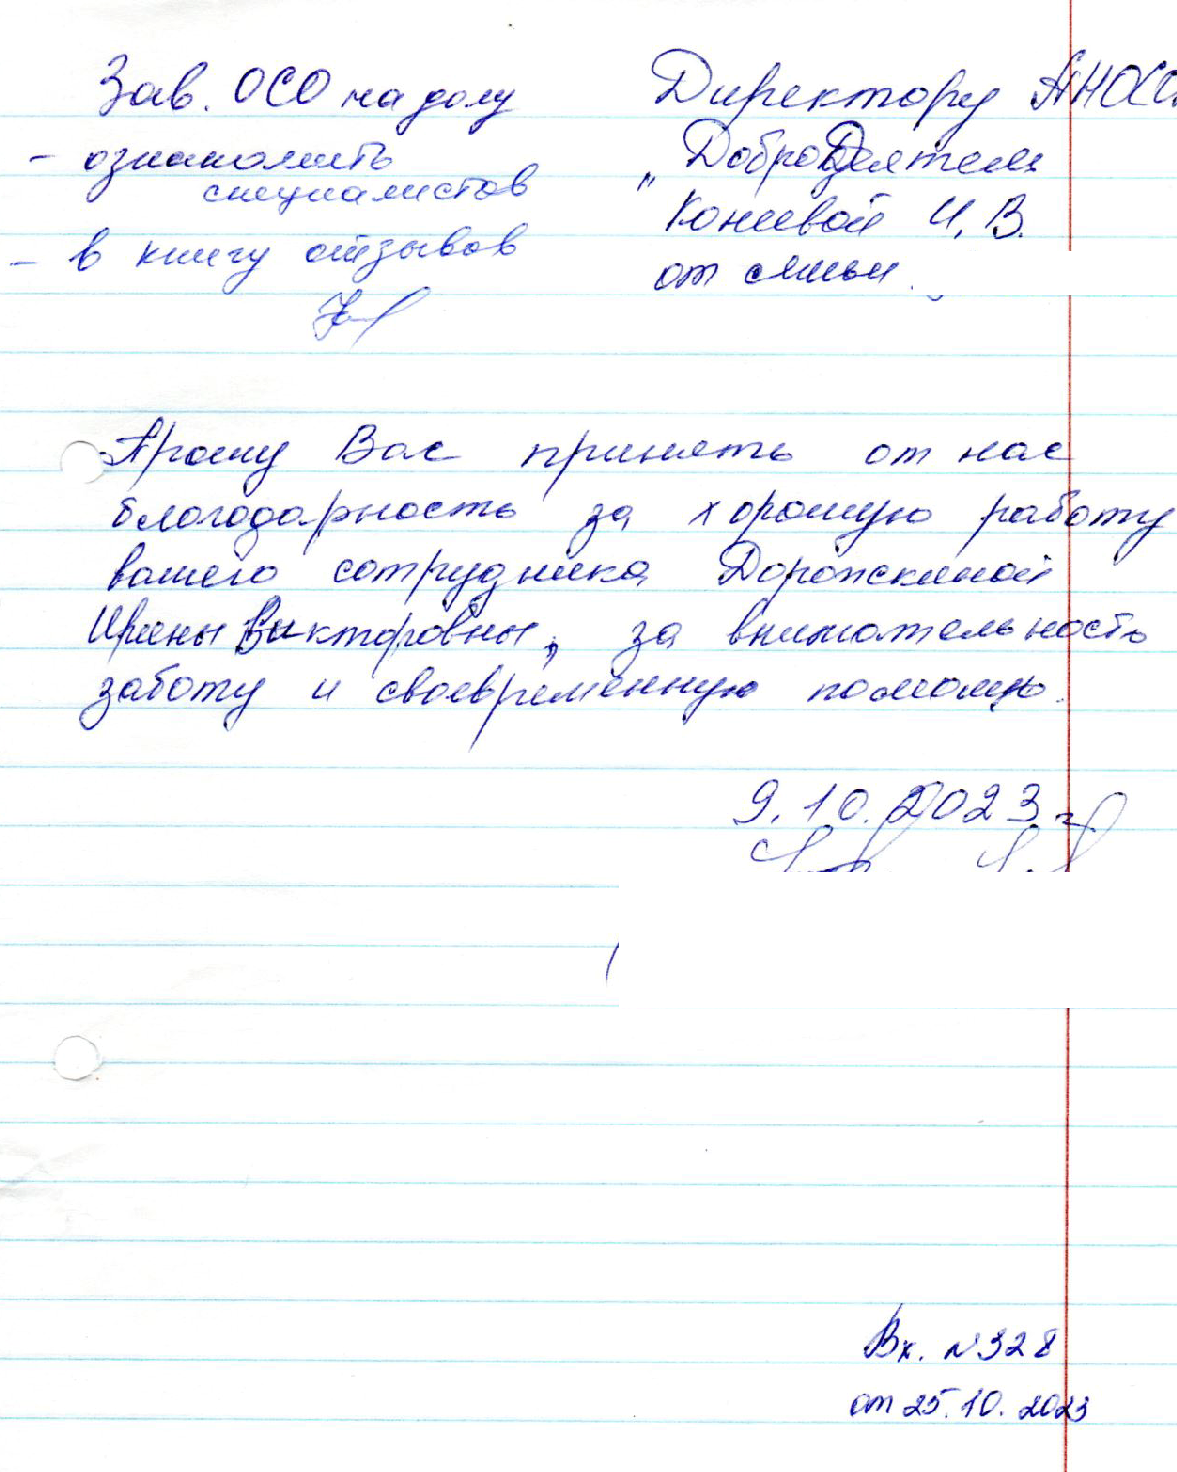 Зав. ОСО на дому
- ознакомить
специалистов
- в книгу отзывов
Директору АНОСО
"Добродеятели
Коневой И.В.
от семьи
Прошу Вас принять от нас
благодарность за хорошую работу
вашего сотрудника Дорожкиной
Ирины Викторовны, за внимательность
заботу и своевременную помощь.
9.10.2023 г.
Вх. №328
от 25.10.2023